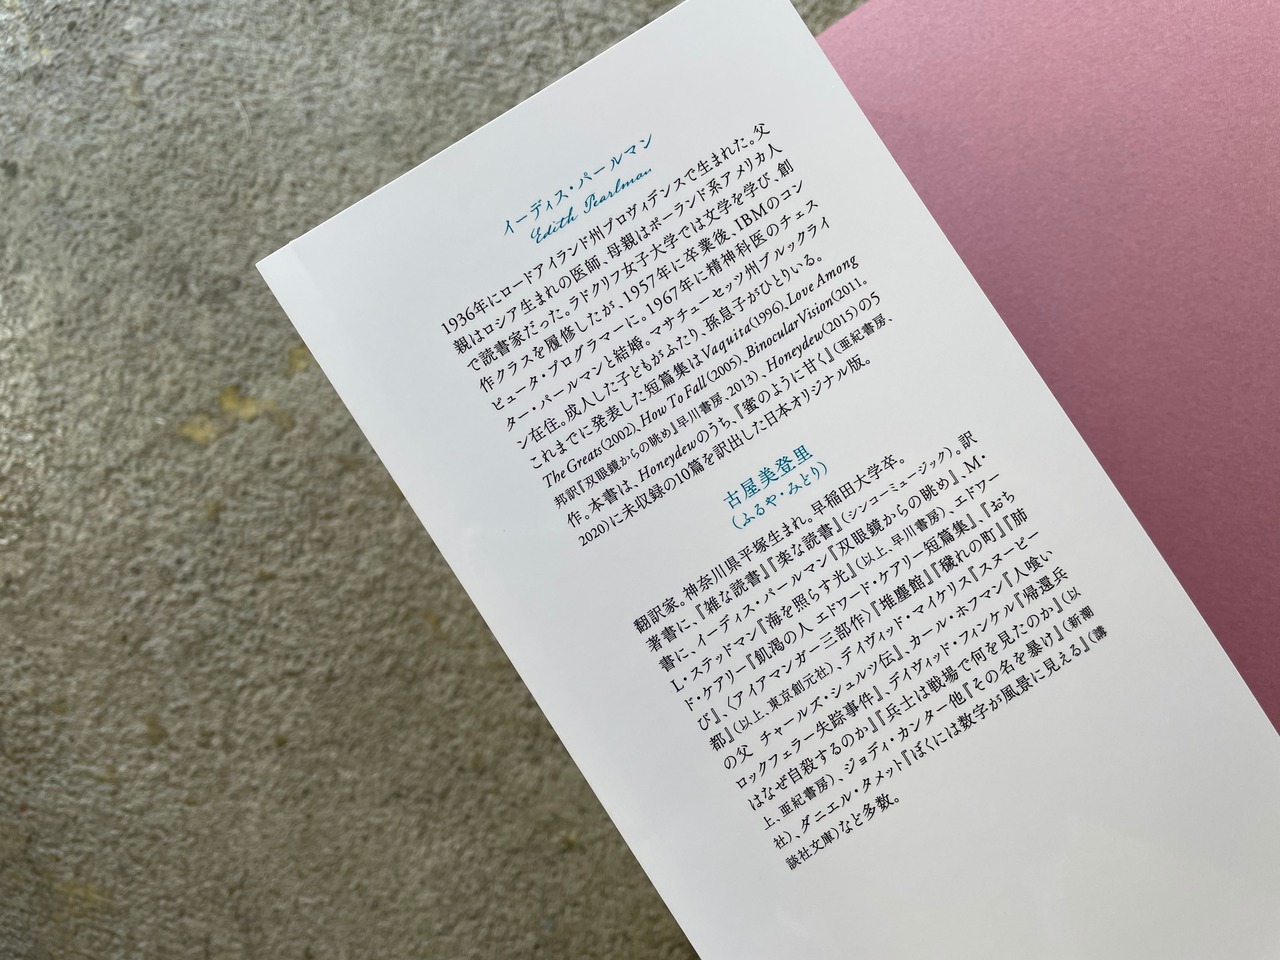 イーディス・パールマン
Edith Pearlman
1936年にロードアイランド州プロヴィデンスで生まれた。父
親はロシア生まれの医師、母親はポーランド系アメリカ人
で読書家だった。ラドクリフ女子大学では文学を学び、創
作クラスを履修したが、1957年に卒業後、IBMのコン
ピュータ・プログラマーに。1967年に精神科医のチェス
ター・パールマンと結婚。マサチューセッツ州ブルックライ
ン在住。成人した子どもがふたり、孫息子がひとりいる。
これまでに発表した短篇集はVaquita(1996)、Love Among
The Greats(2002)、How To Fall(2005)、Binocular Vision(2011。
邦訳『双眼鏡からの眺め』早川書房、2013)、Honeydew(2015)の5
作。本書は、Honeydewのうち、『蜜のように甘く』(亜紀書房、
2020)に未収録の10篇を訳出した日本オリジナル版。
古屋美登里
(ふるや・みどり)
翻訳家。神奈川県平塚生まれ。早稲田大学卒。
著書に、『雑な読書』『楽な読書』(シンコーミュージック)。訳
書に、イーディス・パールマン『双眼鏡からの眺め』、M・
L・ステッドマン『海を照らす光』(以上、早川書房)、エドワー
ド・ケアリー『飢渇の人 エドワード・ケアリー短篇集』、『おち
び』、〈アイアマンガー三部作〉『堆塵館』『穢れの町』『肺
都』(以上、東京創元社)、デイヴィッド・マイケリス『スヌーピー
の父 チャールズ・シュルツ伝』、カール・ホフマン『人喰い
ロックフェラー失踪事件』、デイヴィッド・フィンケル『帰還兵
はなぜ自殺するのか』『兵士は戦場で何を見たのか』(以
上、亜紀書房)、ジョディ・カンター他『その名を暴け』(新潮
社)、ダニエル・タメット『ぼくには数字が風景に見える』(講
談社文庫)など多数。